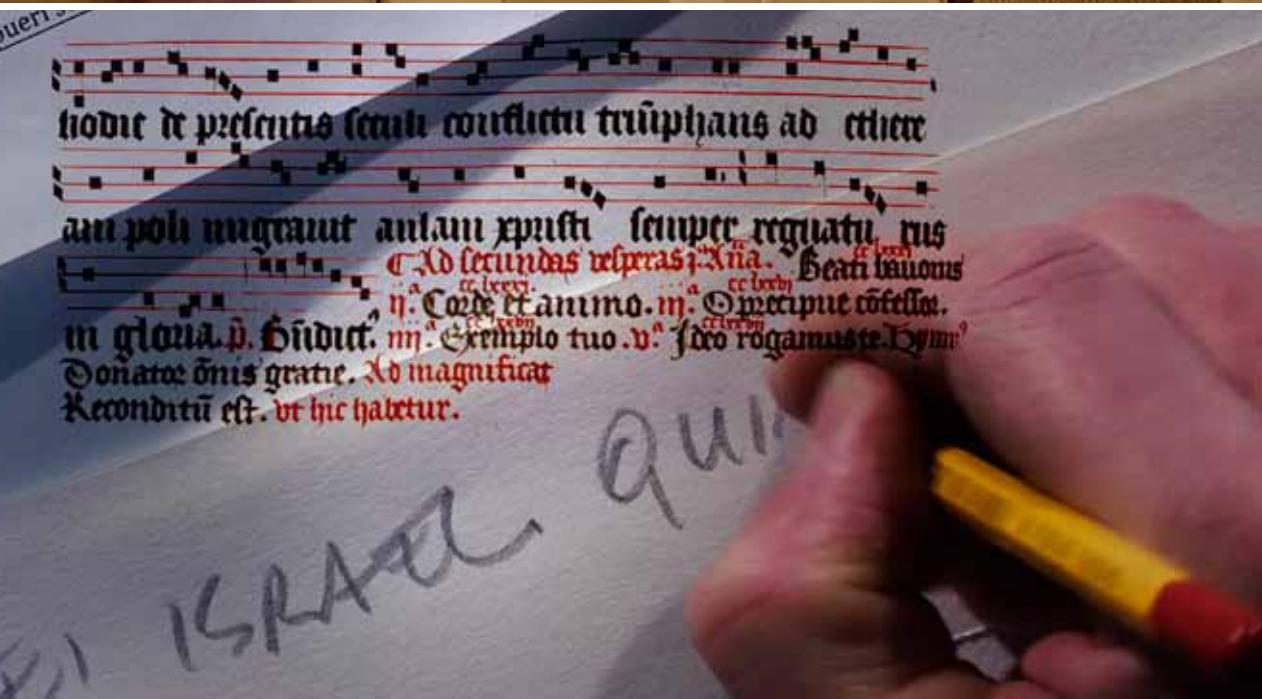 pueri
hodie de presentis seculi conflictu triũphans ad ethere
am poli migrauit aulam xpristi semper regnatu rus
Ad secundas vesperas j. Añа. Beati bauonis
in gloria. p̃. Bñdict⁹. ij.ª Corde et animo. iij.ª O precipue cõfessor.
iiij.ª Exemplo tuo. v.ª Ideo rogamus te. Hymn⁹
Donator õnis gratie. Ad magnificat
Reconditũ est. vt hic habetur.
EI ISRAEL QUI